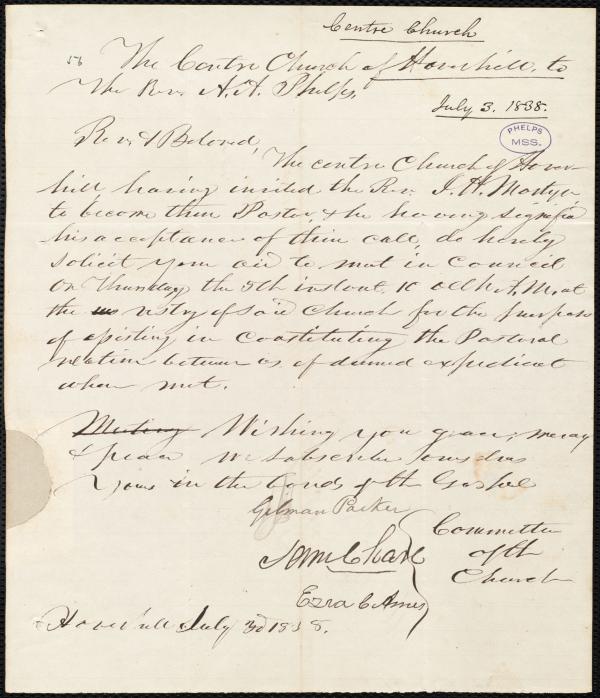 Centre Church
56
The Centre Church of Haverhill, to
The Rev. A. A. Phelps,
July 3. 1838.
PHELPS
MSS.
Rev. & Beloved,
The centre Church of Haver-
hill having invited the Rev. J. H. Martyn
to become their Pastor, & he having signified
his acceptance of their call, do hereby
solicit your aid to meet in Council
on Thursday the 5th instant, 10 oclk A.M. at
the vestry of said Church for the purpose
of assisting in constituting the Pastoral
relation between us if deemed expedient
when met.
Meeting Wishing you grace, mercy
& peace we subscribe ourselves
Yours in the bonds of the Gospel
Gilman Parker
Chase
Ezra C Ames
Committee
of the
Church
Haverhill July 3d 1838.